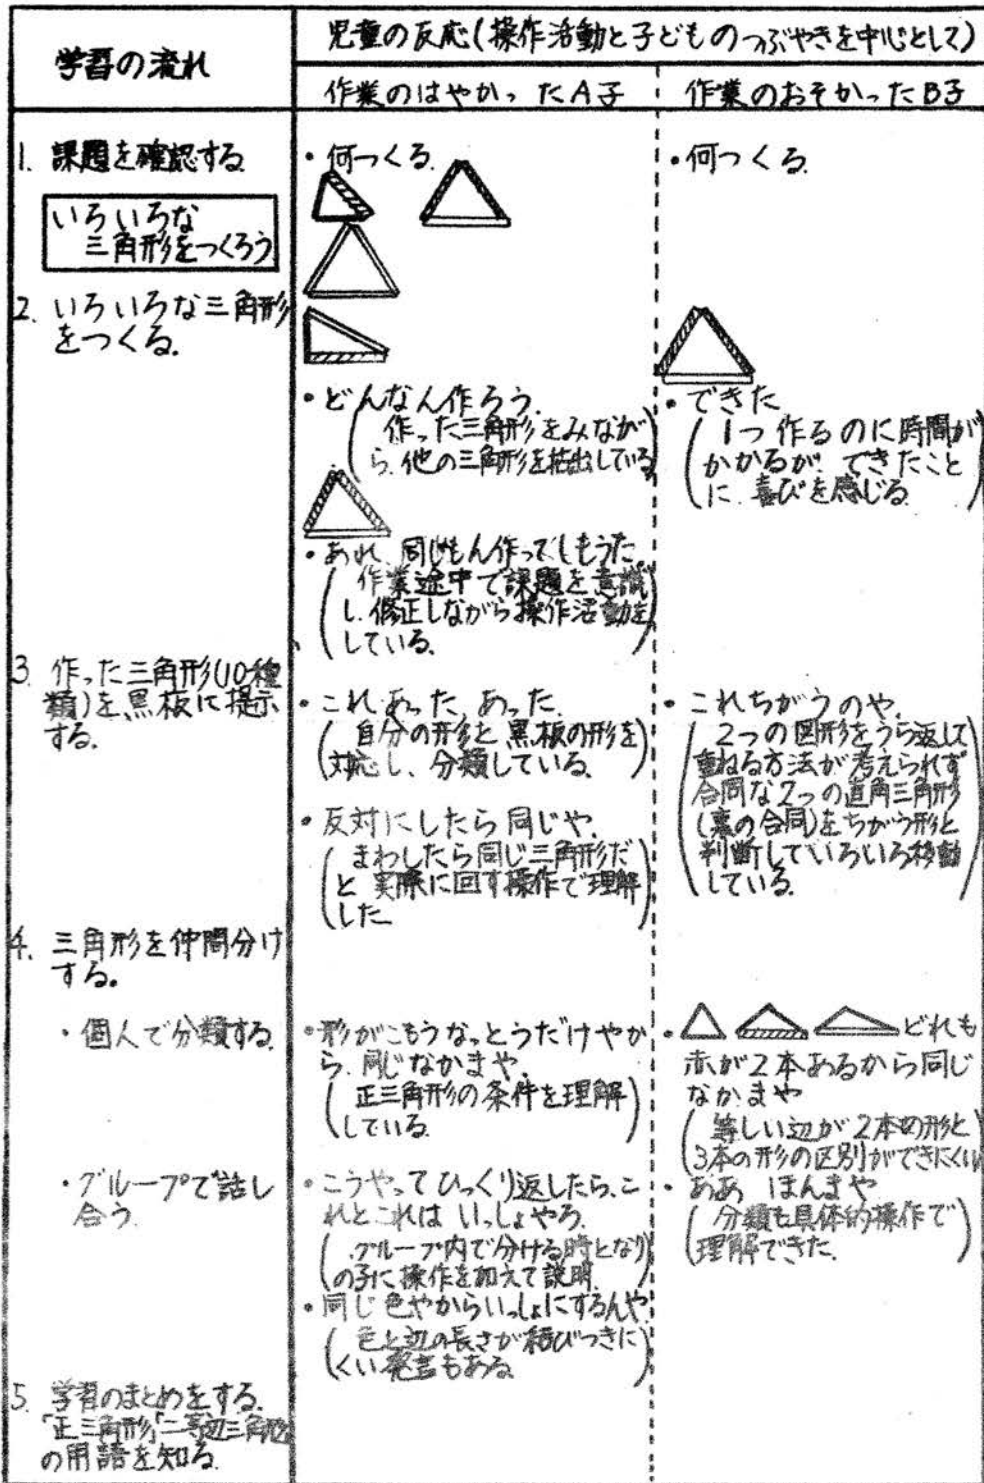 学習の流れ
児童の反応(操作活動と子どものつぶやきを中心として)
作業のはやかったA子
作業のおそかったB子
1. 課題を確認する
いろいろな
三角形をつくろう
2. いろいろな三角形
をつくる.
3. 作った三角形(10種
類)を黒板に提示
する.
4. 三角形を仲間分け
する。
・個人で分類する
・グループで話し
合う.
5. 学習のまとめをする.
「正三角形」「二等辺三角形」
の用語を知る.
・何つくる.
・どんなん作ろう.
(作った三角形をみなが
ら、他の三角形を描出している)
・あれ 同じもん作ってしもうた
(作業途中で課題を意識
し、修正しながら操作活動を
している.)
・これ あった、あった.
(自分の形と黒板の形を
対応し、分類している.)
・反対にしたら同じや.
(まわしたら同じ三角形だ
と実際に回す操作で理解
した)
・形がこもうなっとうだけやか
ら、同じなかまや.
(正三角形の条件を理解
している.)
・こうやってひっくり返したら、こ
れとこれは いっしょやろ.
(グループ内で分ける時となり
の子に操作を加えて説明.)
・同じ色やからいっしょにするんや
(色と辺の長さが結びつきに
くい発言もある)
・何つくる.
・できた
(1つ作るのに時間が
かかるが、できたこと
に、喜びを感じる)
・これちがうのや.
(2つの図形をうら返して
重ねる方法が考えられず
合同な2つの直角三角形
(裏の合同)をちがう形と
判断していろいろ移動
している.)
・どれも
赤が2本あるから同じ
なかまや
(等しい辺が2本の形と
3本の形の区別ができにくい)
・ああ ほんまや
(分類も具体的操作で
理解できた.)